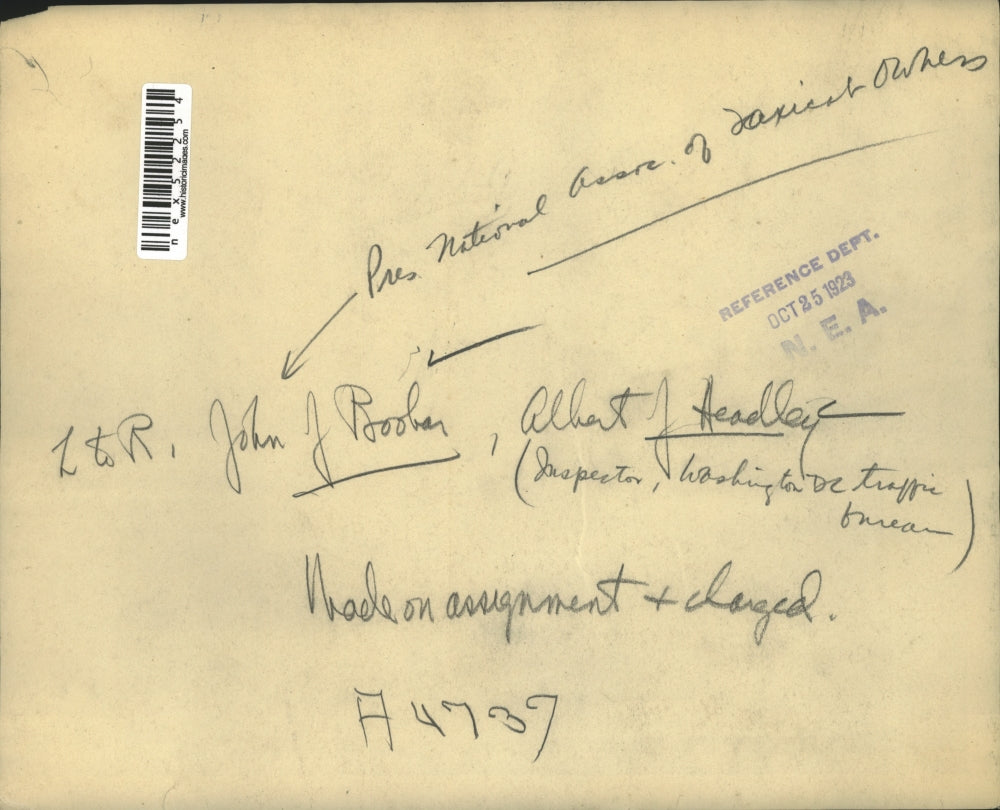 nex52254
www.historicimages.com
Pres. National Assoc. of Taxicab Owners
REFERENCE DEPT.
OCT 25 1923
N. E. A.
L to R. John J Boobar, Albert J Headley
(Inspector, Washington DC traffic
bureau)
Made on assignment + charged.
A4737